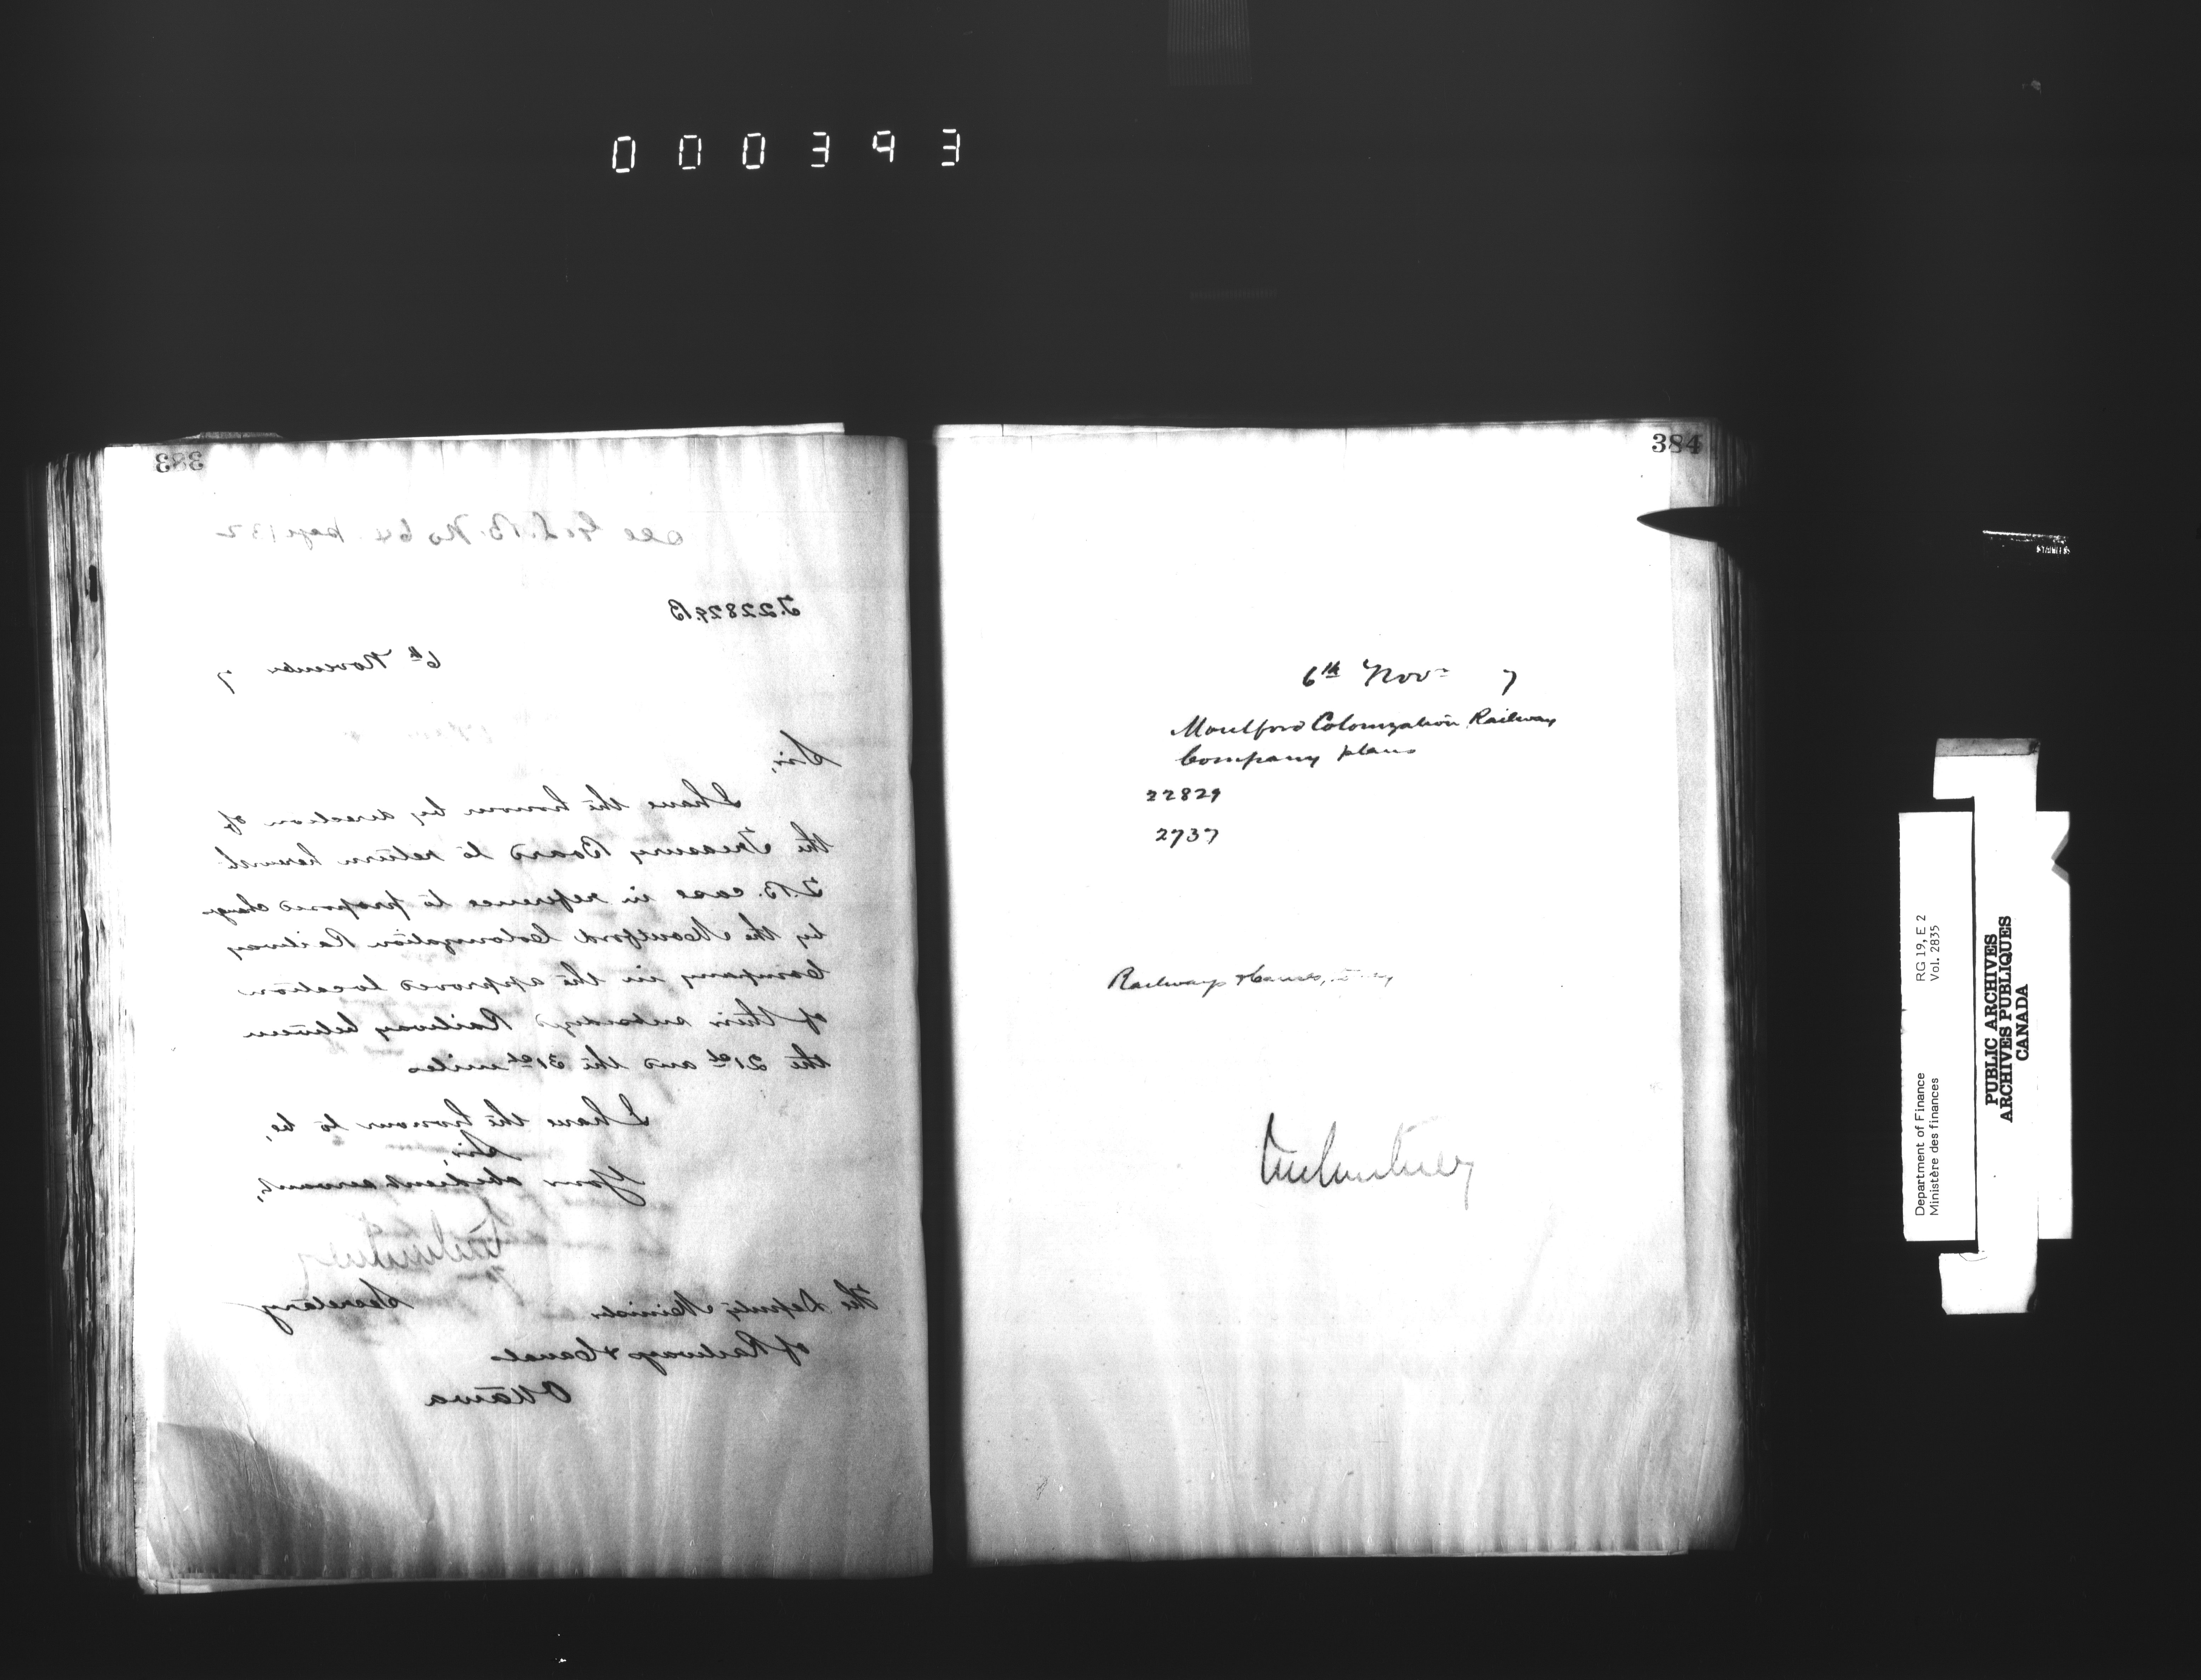 000393
383
see G.L.B. No 64 page 132
T.22829B
6th November 7
Sir,
I have the honour by direction of
the Treasury Board to return herewith
T.B. case in reference to proposed change
by the Montford Colonization Railway
Company in the approved location
of their subsidized Railway between
the 21st and the 31st miles
I have the honour to be,
Sir,
Your obedient servant,
Secretary
The Deputy Minister
of Railways & Canals
Ottawa
384
6th Novr 7
Montford Colonization Railway
Company plans
22829
2737
Railways & Canals,
Department of Finance
Ministère des finances
RG 19, E 2
Vol. 2835
PUBLIC ARCHIVES
ARCHIVES PUBLIQUES
CANADA